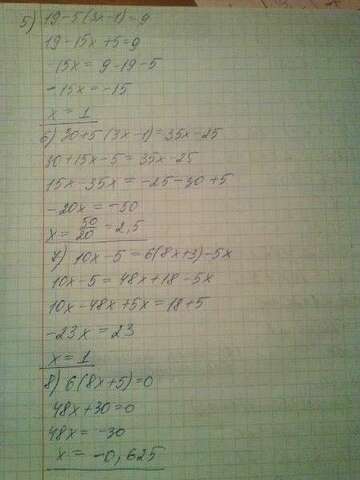 5) 19-5(3x-1)=9
19-15x+5=9
-15x = 9-19-5
-15x = -15
x = 1
6) 30+5(3x-1)=35x-25
30+15x-5=35x-25
15x-35x=-25-30+5
-20x = -50
x = 50/20 = 2,5
7) 10x-5=6(8x+3)-5x
10x-5=48x+18-5x
10x-48x+5x=18+5
-23x = 23
x = 1
8) 6(8x+5)=0
48x+30=0
48x = -30
x = -0,625